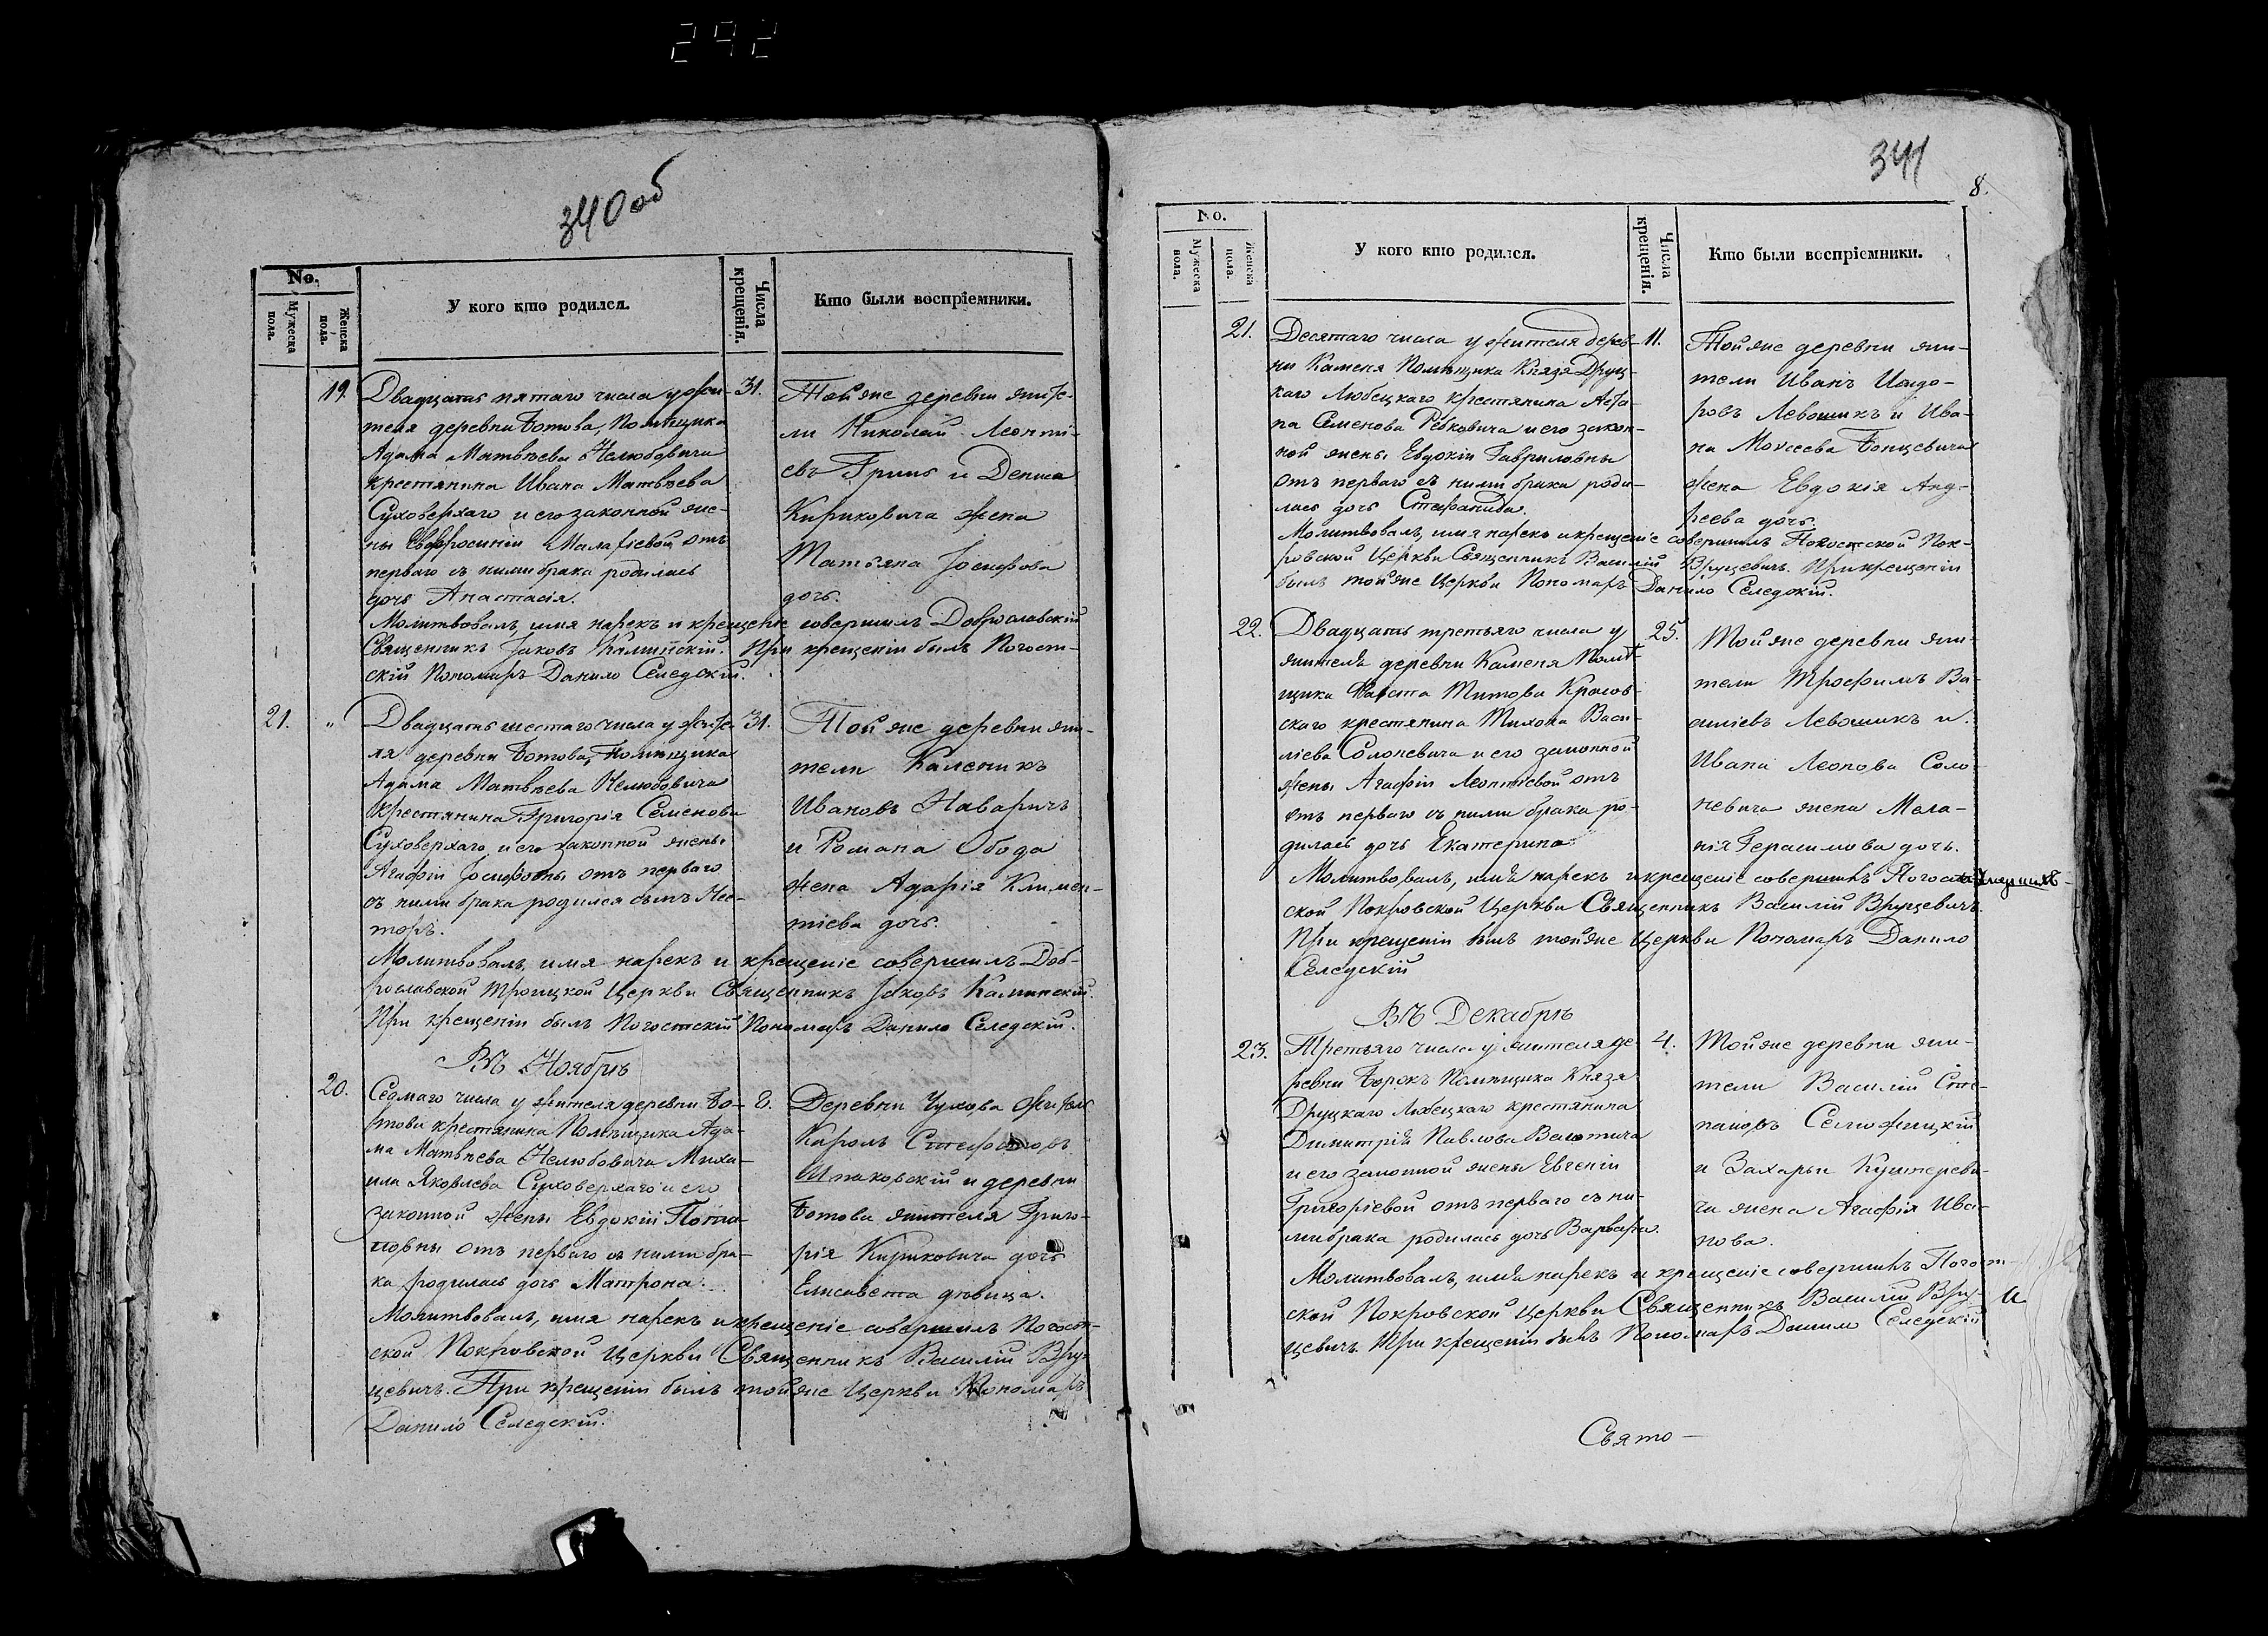 292
340 об
No.
Мужеска пола.
Женска пола.
У кого кто родился.
Числа крещенія.
Кто были воспріемники.
19.
Двадцать пятаго числа у жи-
теля деревни Ботова, Помѣщика
Адама Матвѣева Нелюбовича
крестянина Ивана Матвѣева
Суховерхаго и его законной же-
ны Евфросиніи Малафіевой отъ
перваго съ ними брака родилась
дочь Анастасія.
31.
Той же деревни жите-
ли Николай Леонті-
евъ Гринь и Дениса
Кириковича жена
Матьяна Іосифова
дочь.
Молитвовалъ, имя нарекъ и крещеніе совершилъ Доброславскій
Священникъ Іаковъ Калинскій. При крещеніи былъ Погост-
скій Пономарь Данило Селедскій.
21.
"
Двадцать шестаго числа у жите-
ля деревни Ботова, Помѣщика
Адама Матвѣева Нелюбовича
Крестянина Григорія Семенова
Суховерхаго и его законной жены
Агафіи Іосифовны отъ перваго
съ ними брака родился сынъ Нес-
торъ.
31.
Той же деревни жи-
тели Каленикъ
Ивановъ Наваричъ
и Романа Обода
жена Агафія Климен-
тіева дочь.
Молитвовалъ, имя нарекъ и крещеніе совершилъ Доб-
рославской Троицкой Церкви Священникъ Іаковъ Калинскій.
При крещеніи былъ Погостскій Пономарь Данило Селедскій.
Въ Ноябрѣ
20.
Седмаго числа у жителя деревни Бо-
това крестянина Помѣщика Ада-
ма Матвѣева Нелюбовича Миха-
ила Яковлева Суховерхаго и его
законной жены Евдокіи
отъ перваго съ ними бра-
ка родилась дочь Матрона.
8.
Деревни Чухова
Кароль
и деревни
Ботова жителя Григо-
рія Кириковича дочь
Елисавета дѣвица.
Молитвовалъ, имя нарекъ и крещеніе совершилъ Погост-
ской Покровской Церкви Священникъ Василій Вру-
цевичъ. При крещеніи былъ той же Церкви Пономарь
Данило Селедскій.
341
8.
No.
Мужеска пола.
Женска пола.
У кого кто родился.
Числа крещенія.
Кто были воспріемники.
21.
Десятаго числа у жителя дерев-
ни Каменя Помѣщика Князя Друц-
каго Любецкаго крестянина
Семенова Ребковича и его закон-
ной жены Евдокіи Гавриловны
отъ перваго съ ними брака роди-
лась дочь Стефанида.
11.
Той же деревни жи-
тели Иванъ Исидо-
ровъ Левошикъ и Ива-
на Моисеева Бонцевича
жена Евдокія Анд-
реева дочь.
Молитвовалъ, имя нарекъ и крещеніе совершилъ Погостской Пок-
ровской Церкви Священникъ Василій Вруцевичъ. При крещеніи
былъ той же Церкви Пономарь Данило Селедскій.
22.
Двадцать третьяго числа у
жителя деревни Каменя Помѣ-
щика Фавста Титова Красов-
скаго крестянина Тихона Васи-
ліева Солоневича и его законной
жены Агафіи Леонтіевой отъ
отъ перваго съ ними брака ро-
дилась дочь Екатерина.
25.
Той же деревни жи-
тели Трофимъ Ва-
силіевъ Левошикъ и
Ивана Леонова Соло-
невича жена Мала-
нія Герасимова дочь.
Молитвовалъ, имя нарекъ и крещеніе совершилъ Погост-
ской Покровской Церкви Священникъ Василій Вруцевичъ.
При крещеніи былъ той же Церкви Пономарь Данило
Селедскій
Въ Декабрѣ
23.
Третьяго числа у жителя де-
ревни Борокъ Помѣщика Князя
Друцкаго Любецкаго крестянина
Димитрія Павлова
и его законной жены Евгеніи
Григоріевой отъ перваго съ ни-
ми брака родилась дочь Варвара.
4.
Той же деревни жи-
тели Василій Сте-
пановъ
и Захарьи Кушнереви-
ча жена Агафія Ива-
нова.
Молитвовалъ, имя нарекъ и крещеніе совершилъ Погост-
ской Покровской Церкви Священникъ Василій Вру-
цевичъ. При крещеніи былъ Пономарь Данило Селедскій
Свято-